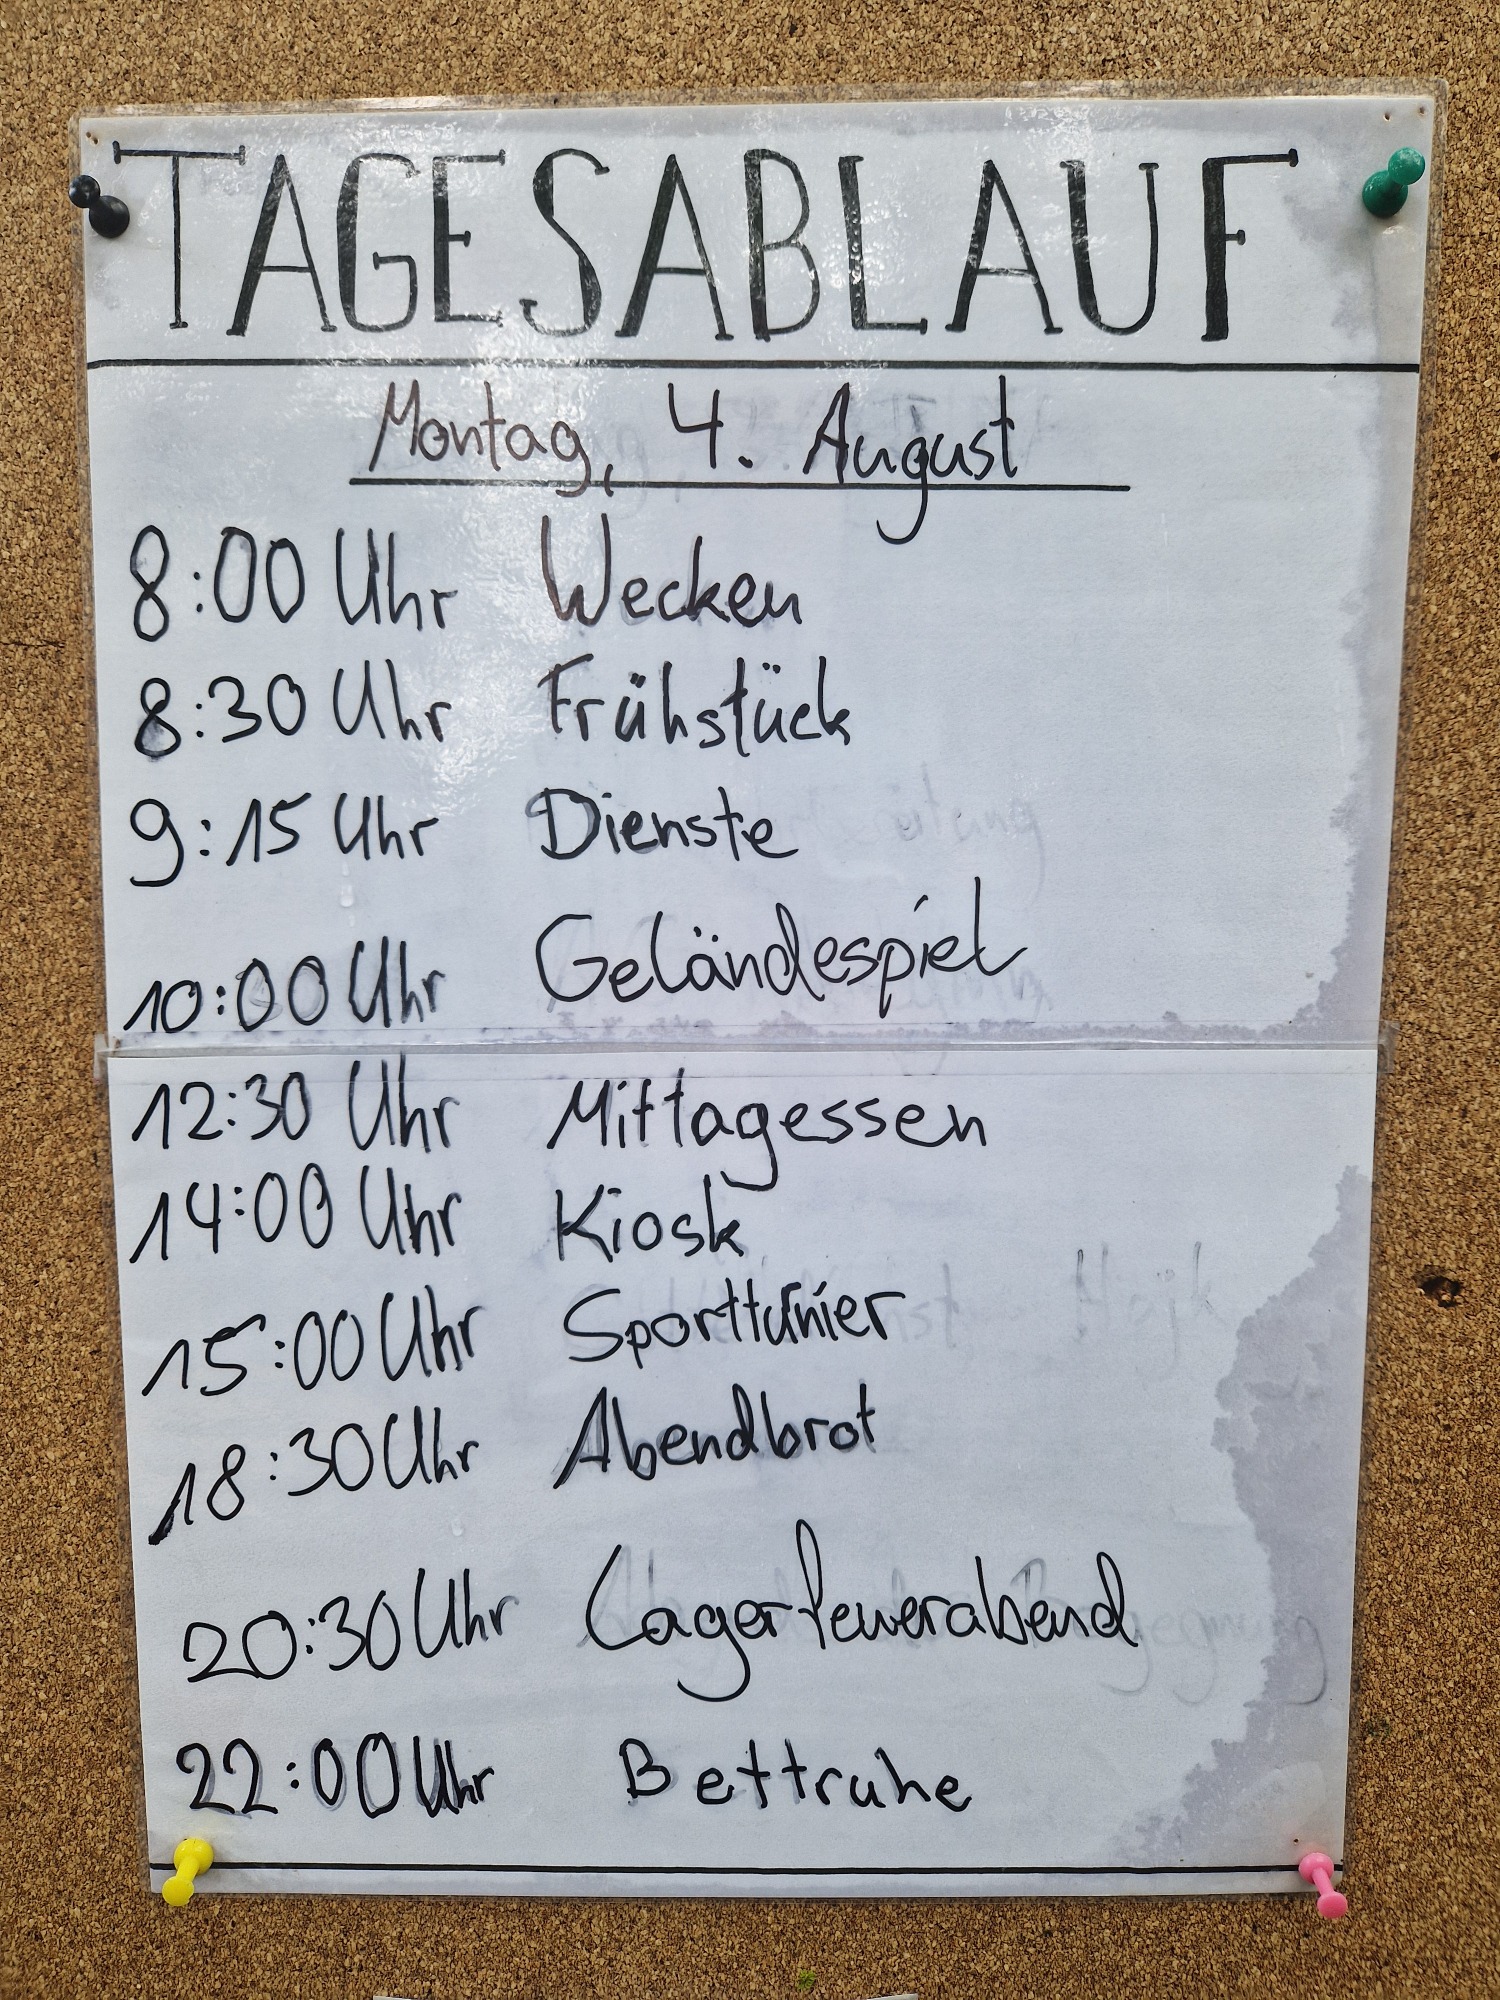 TAGESABLAUF
Montag, 4. August
8:00 Uhr Wecken
8:30 Uhr Frühstück
9:15 Uhr Dienste
10:00 Uhr Geländespiel
12:30 Uhr Mittagessen
14:00 Uhr Kiosk
15:00 Uhr Sportturnier
18:30 Uhr Abendbrot
20:30 Uhr Lagerfeuerabend
22:00 Uhr Bettruhe